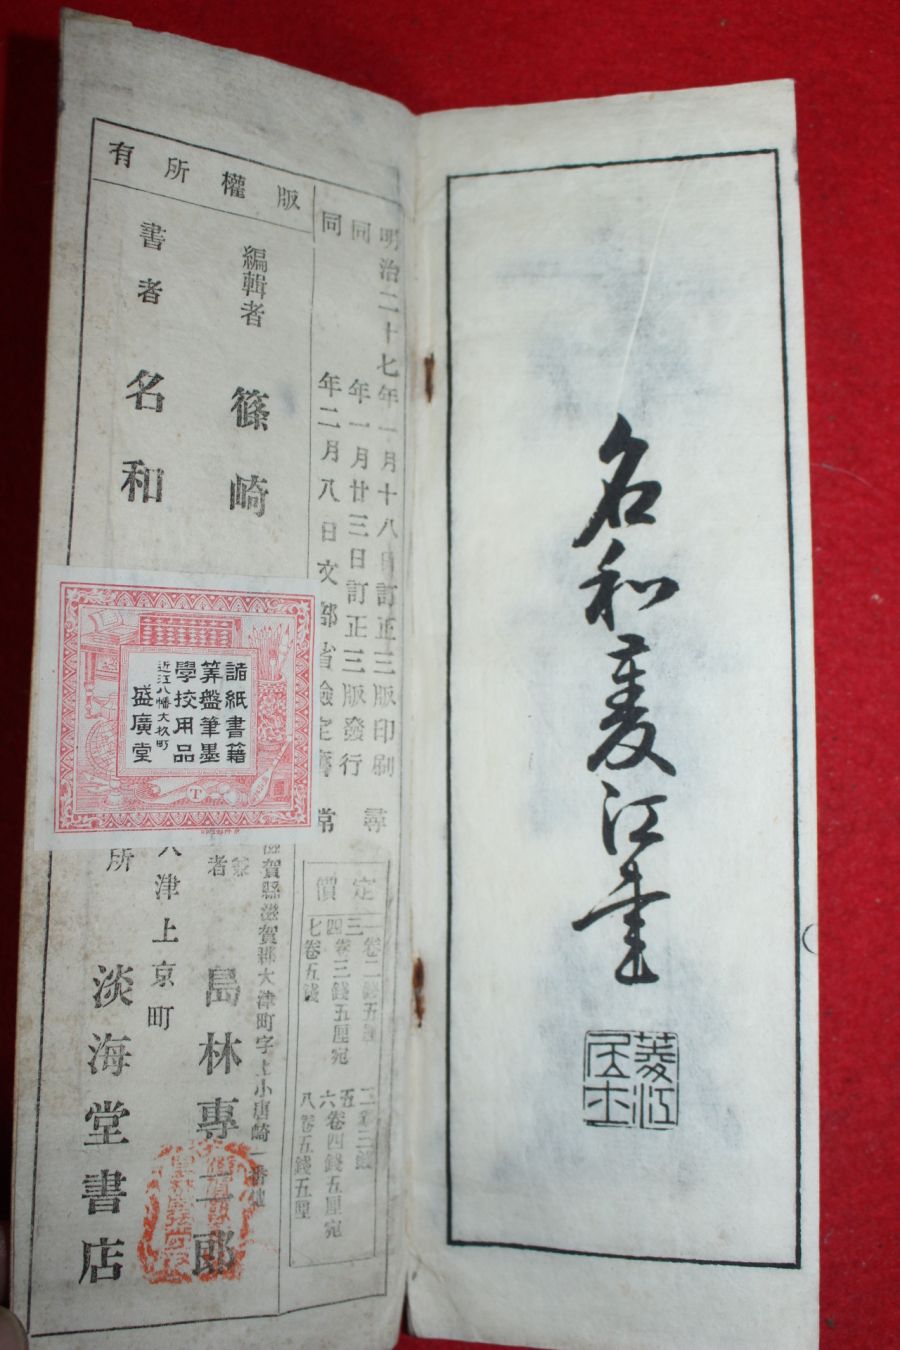 名和菱江書
菱江
居士
明治二十七年一月十八日訂正三版印刷
同年一月廿三日訂正三版發行
同年二月八日文部省檢定濟
尋常
定價
一卷二錢五厘
二卷三錢
三四卷三錢五厘宛
五六卷四錢五厘宛
七卷五錢
八卷五錢五厘
版權所有
編輯者 篠崎
書者 名和
滋賀縣滋賀郡大津町字上小唐崎一番地
兼
者 島林專二郎
大津上京町
所 淡海堂書店
諸紙書籍
筭盤筆墨
學校用品
近江八幡大杉町
盛廣堂